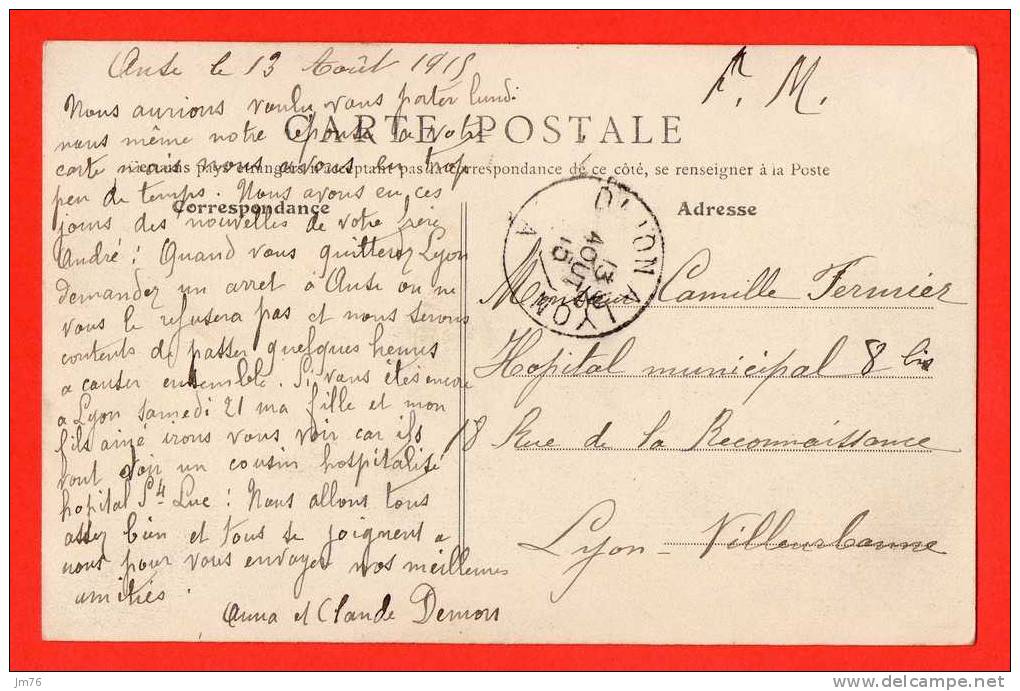 Anse le 13 Août 1915
F. M.
Nous aurions voulu vous porter lundi
nous même notre réponse la votre
carte mais nous avons eu trop
peu de temps. Nous avons eu ces
jours des nouvelles de votre frère
André : Quand vous quitterez Lyon
demandez un arret à Anse on ne
vous le refusera pas et nous serons
contents de passer quelques heures
a causer ensemble. Si vous êtes encore
a Lyon samedi 21 ma fille et mon
fils ainé irons vous voir car ils
vont voir un cousin hospitalisé
hopital St Luc : Nous allons tous
assez bien et tous se joignent a
nous pour vous envoyer nos meilleures
amitiés.
Anna et Claude Demon
CARTE POSTALE
Certains pays étrangers n'acceptant pas la correspondance de ce côté, se renseigner à la Poste
Correspondance
Adresse
LYON
13
AOUT
15
Monsieur Camille Fermier
Hopital municipal 8 bis
18 Rue de la Reconnaissance
Lyon - Villeurbanne
jm76
www.delcampe.net